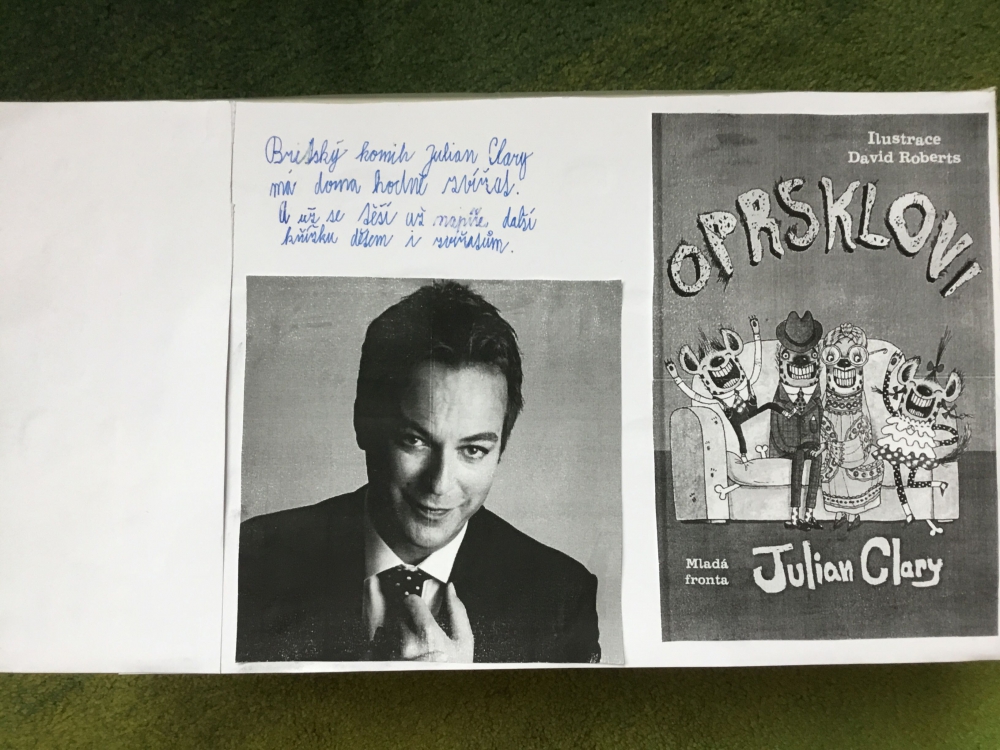 Britský komik Julian Clary
má doma hodně zvířat.
A už se těší až napíše další
knížku dětem i zvířatům.
Ilustrace
David Roberts
OPRSKLOVI
Mladá
fronta
Julian Clary